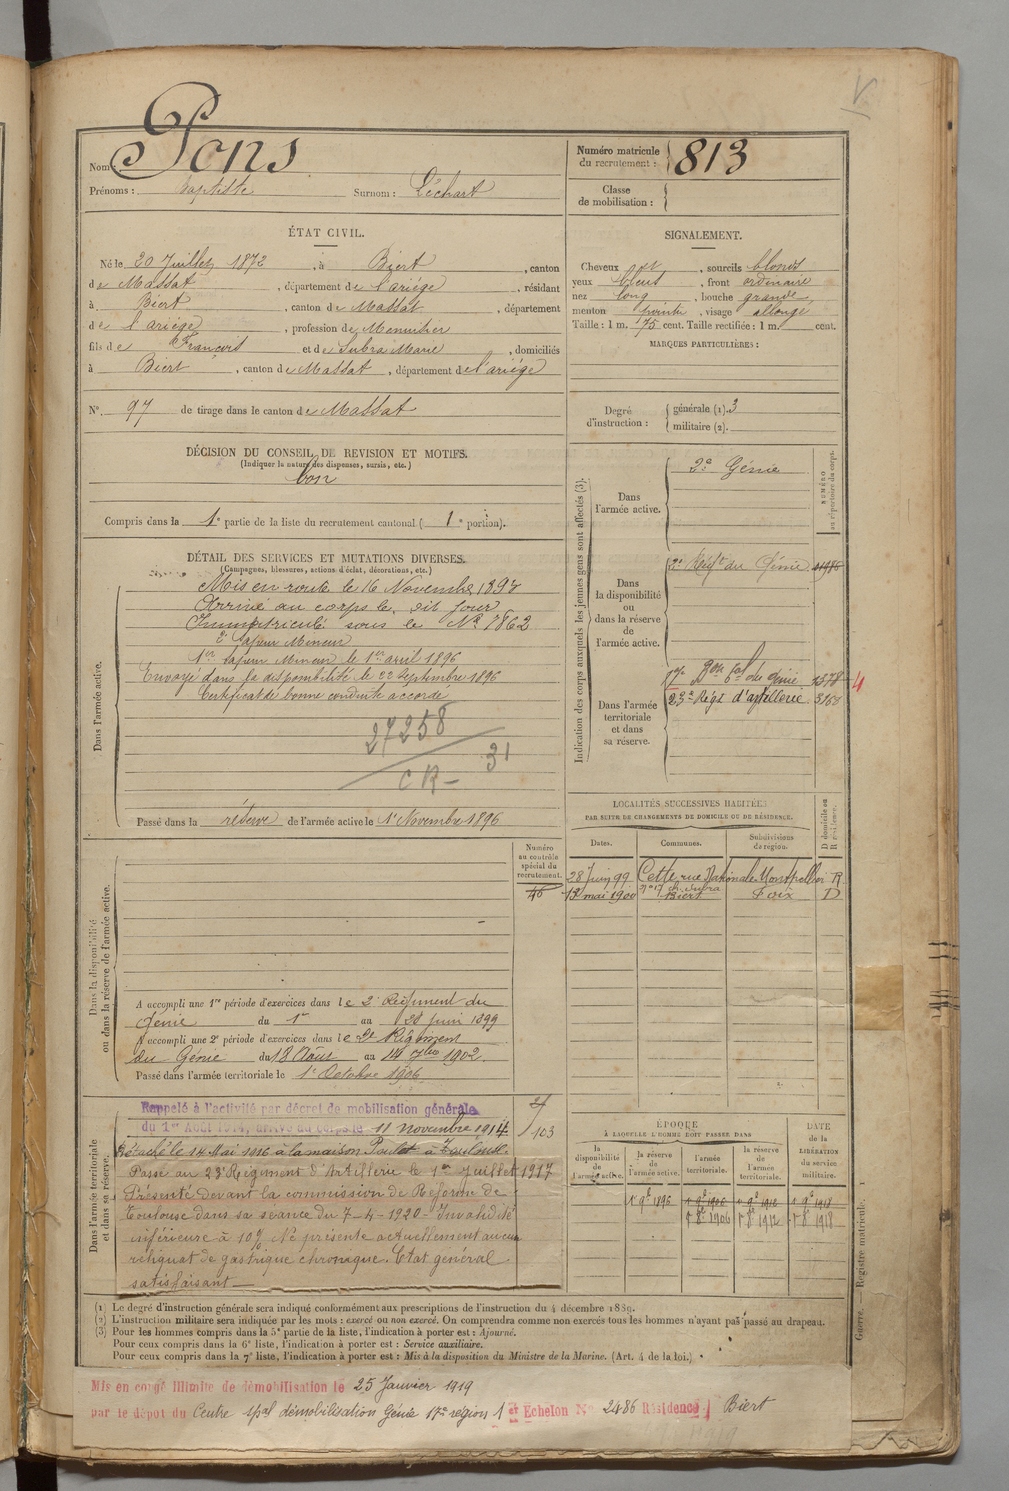 V
Nom : Pons
Prénoms : Baptiste Surnom : Léchart
Numéro matricule du recrutement : 813
Classe de mobilisation :
ÉTAT CIVIL.
Né le 20 Juillet 1872, à Biert, canton
de Massat, département de l'ariège, résidant
à Biert, canton de Massat, département
de l'ariège, profession de Menuisier
fils de François et de Subra Marie, domiciliés
à Biert, canton de Massat, département de l'ariège
N° 97 de tirage dans le canton de Massat
SIGNALEMENT.
Cheveux , sourcils blonds
yeux bleus, front ordinaire
nez long, bouche grande
menton pointu, visage allongé
Taille : 1 m. 75 cent. Taille rectifiée : 1 m. cent.
MARQUES PARTICULIÈRES :
Degré d'instruction : générale (1). 3
militaire (2).
DÉCISION DU CONSEIL DE REVISION ET MOTIFS.
(Indiquer la nature des dispenses, sursis, etc.)
bon
Compris dans la 1e partie de la liste du recrutement cantonal ( 1e portion).
DÉTAIL DES SERVICES ET MUTATIONS DIVERSES.
(Campagnes, blessures, actions d'éclat, décorations, etc.)
Dans l'armée active.
Mis en route le 16 Novembre 1893
Arrivé au corps le dit jour
Immatriculé sous le N° 7862
2e Sapeur Mineur
1er Sapeur Mineur le 1er avril 1896
Envoyé dans la disponibilité le 22 Septembre 1896
Certificat de bonne conduite accordé
27258
CR - 31
Passé dans la réserve de l'armée active le 1er Novembre 1896
Indication des corps auxquels les jeunes gens sont affectés (3).
NUMÉRO au répertoire du corps.
Dans l'armée active.
2e Génie
Dans la disponibilité ou dans la réserve de l'armée active.
2e Régt du Génie
Dans l'armée territoriale et dans sa réserve.
17e Bon tal du Génie 1378 4
23e Régt d'artillerie 3168
LOCALITÉS SUCCESSIVES HABITÉES
PAR SUITE DE CHANGEMENTS DE DOMICILE OU DE RÉSIDENCE.
Dates. Communes. Subdivisions de région. D domicile ou R résidence.
28 Juin 99 Cette rue Nationale Montpellier R
n° 17 ch. Subra
13 mai 1900 Biert Foix D
Numéro au contrôle spécial du recrutement.
46
Dans la disponibilité ou dans la réserve de l'armée active.
A accompli une 1re période d'exercices dans le 2e Régiment du
Génie du 1er au 28 juin 1899
A accompli une 2e période d'exercices dans le 2e Régiment
du Génie du 18 Août au 14 7bre 1902
Passé dans l'armée territoriale le 1er Octobre 1906
Dans l'armée territoriale et dans sa réserve.
Rappelé à l'activité par décret de mobilisation générale
du 1er Août 1914, arrivé au corps le 11 novembre 1914
103
Détaché le 14 Mai 1916 à la maison Poulet à Toulouse
Passé au 23e Régiment d'Artillerie le 1er Juillet 1917
Présenté devant la commission de Réforme de
Toulouse dans sa séance du 7-4-1920 - Invalidité
inférieure à 10% Ne présente actuellement aucun
reliquat de gastrique chronique. Etat général
satisfaisant
ÉPOQUE
À LAQUELLE L'HOMME DOIT PASSER DANS
la disponibilité de l'armée active. la réserve de l'armée active. l'armée territoriale. la réserve de l'armée territoriale.
DATE de la LIBÉRATION du service militaire.
1er 9bre 1896 1er 9bre 1906 1er 9bre 1912 1er 9bre 1918
1er 8bre 1906 1er 8bre 1912 1er 8bre 1918
(1) Le degré d'instruction générale sera indiqué conformément aux prescriptions de l'instruction du 4 décembre 1889.
(2) L'instruction militaire sera indiquée par les mots : exercé ou non exercé. On comprendra comme non exercés tous les hommes n'ayant pas passé au drapeau.
(3) Pour les hommes compris dans la 5e partie de la liste, l'indication à porter est : Ajourné.
Pour ceux compris dans la 6e liste, l'indication à porter est : Service auxiliaire.
Pour ceux compris dans la 7e liste, l'indication à porter est : Mis à la disposition du Ministre de la Marine. (Art. 4 de la loi.)
Guerre. — Registre matricule. 1
Mis en congé illimité de démobilisation le 25 Janvier 1919
par le dépôt du Centre spal démobilisation Génie 17e région 1er Echelon N° 2486 Résidence Biert